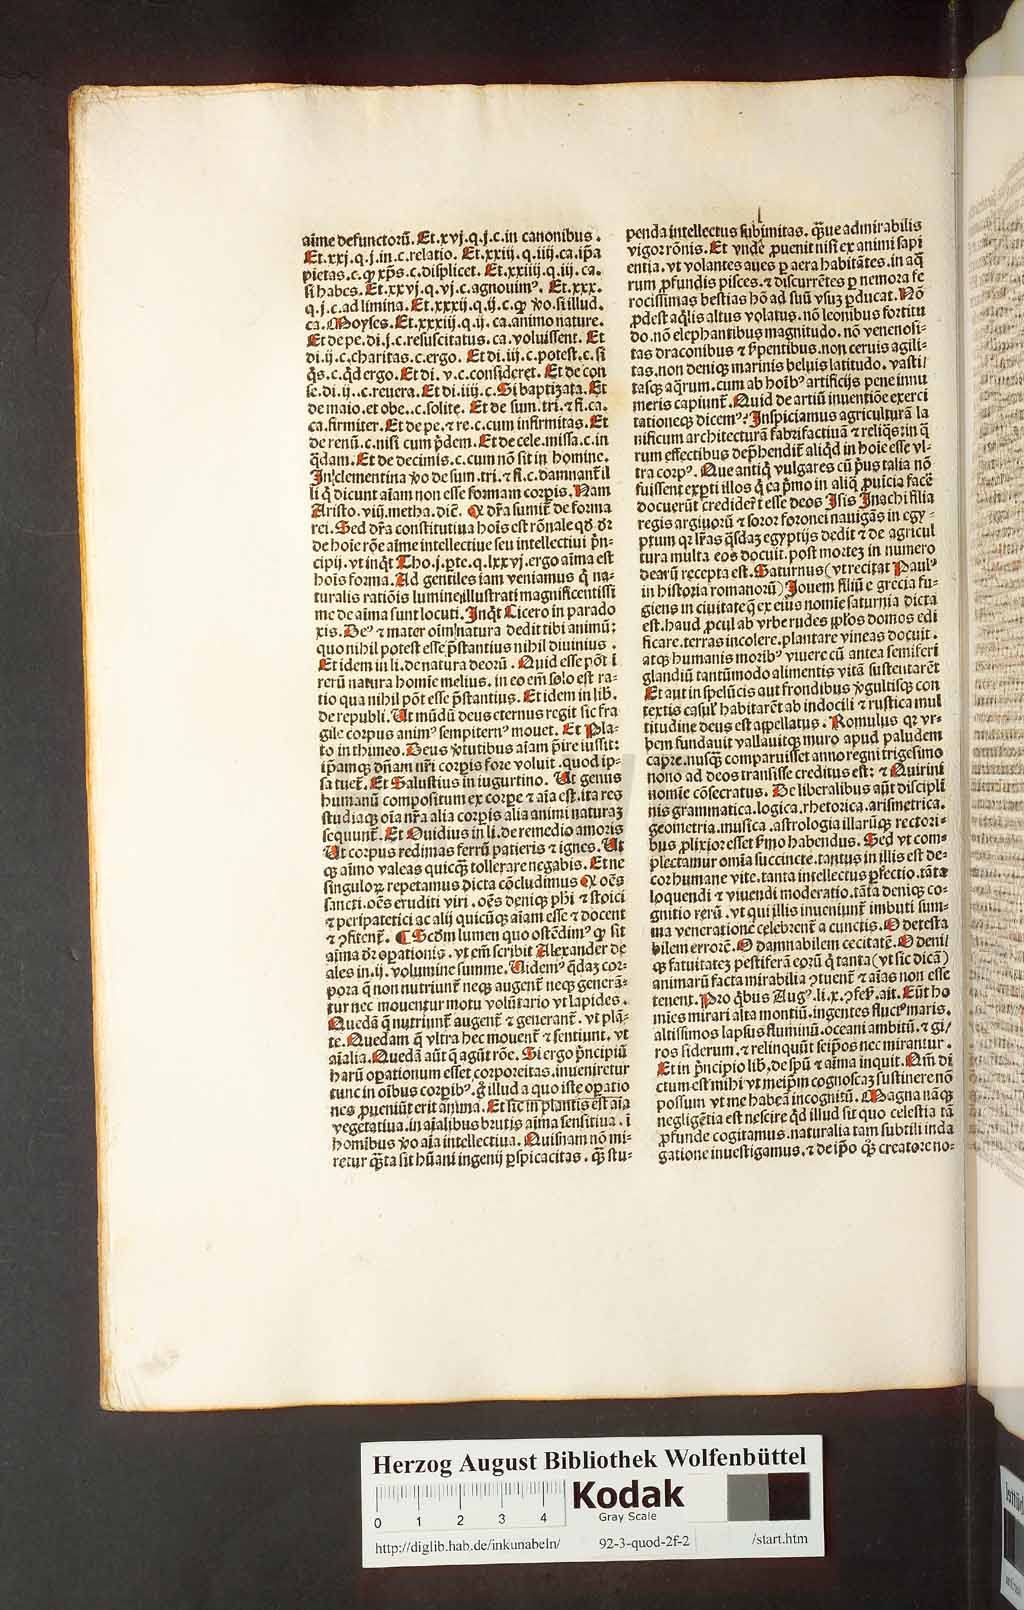 aīme defunctorū. Et.xvj.q.j.c.in canonibus.
Et.xxj.q.j.in.c.relatio. Et.xxiij.q.iiij.ca.ip̄a
pietas.c.ꝙ xp̄s.c.displicet. Et.xxiiij.q.iij.ca.
si habes. Et.xxvj.q.vj.c.agnouimꝰ. Et.xxx.
q.j.c.ad limina. Et.xxxij.q.ij.c.ꝙ ꝟo.si illud.
ca.Moyses. Et.xxxiij.q.ij.ca.animo nature.
Et de pe.di.j.c.resuscitatus.ca.voluissent. Et
di.ij.c.charitas.c.ergo. Et di.iij.c.potest.c.si
q̄s.c.qd ergo. Et di.v.c.consideret. Et de con
se.di.ij..c.reuera. Et di.iiij.c.Si baptizata. Et
de maio.et obe..c.solite. Et de sum.tri.⁊ fi.ca.
ca.firmiter. Et de pe.⁊ re.c.cum infirmitas. Et
de renū.c.nisi cum pridem. Et de cele.missa.c.in
q̄dam. Et de decimis.c.cum nō sit in homine.
In clementina ꝟo de sum.tri.⁊ fi.c.damnant̄ il
li q̇ dicunt aīam non esse formam corꝑis. Nam
Aristo.viij.metha.dic̄. Ꝙ dr̄a sumit̄ de forma
rei. Sed dr̄a constitutiua hoīs est rōnale qd̄ dr̄
de hoīe rōe aīme intellectiue seu intellectiui p̄n-
cipij.vt inq̇t Tho.j.ꝑte.q.lxxvj.ergo aīma est
hoīs forma. Ad gentiles iam veniamus q̇ na-
turalis ratiōis lumine illustrati magnificentissi
me de aīma sunt locuti. Inq̇t Cicero in parado
xis. Deꝰ ⁊ mater oīm natura dedit tibi animū:
quo nihil potest esse p̄stantius nihil diuinius.
Et idem in li.de natura deorū. Quid esse pōt ī
rerū natura homīe melius.in eo em̄ solo est ra-
tio qua nihil pōt esse p̄stantius. Et idem in lib.
de republi. Ut mūdū deus eternus regit sic fra
gile corpus animꝰ sempiternꝰ mouet. Et Pla-
to in thimeo. Deus ꝟtutibus aīam p̄ire iussit:
ip̄amqꝫ dn̄am nr̄i corꝑis fore voluit.quod ip-
sa tuet̄. Et Salustius in iugurtino. Ut genus
humanū compositum ex corꝑe ⁊ aīa est.ita res
studiaqꝫ oīa nr̄a alia corꝑis alia animi naturaꝫ
sequunt̄. Et Ouidius in li.de remedio amoris
Ut corpus redimas ferrū patieris ⁊ ignes. Ut
qꝫ aīmo valeas quicqꝫ tollerare negabis. Et ne
singuloꝝ repetamus dicta cōcludimus Ꝙ oēs
sancti.oēs eruditi viri.oēs deniqꝫ phi ⁊ stoici
⁊ peripatetici ac alij quicūqꝫ aīam esse ⁊ docent
⁊ ꝯfitent̄. ¶ Scdm lumen quo ostēdimꝰ ꝙ sit
aīma dr̄ oꝑationis.vt em̄ scribit Alexander de
ales in.ij.volumine summe. Uidemꝰ q̄daꝫ cor-
pora q̄ non nutriunt̄ neqꝫ augent̄ neqꝫ generā-
tur nec mouentur motu volūtario vt lapides.
Quedā q̄ nutriunt̄ augent̄ ⁊ generant̄.vt plā-
te. Quedam q̄ vltra hec mouent̄ ⁊ sentiunt.vt
aīalia. Quedā aūt q̄ agūt rōe. Si ergo p̄ncipiū
harū oꝑationum esset corporeitas.inueniretur
tunc in oībus corꝑibꝰ.ḡ illud a quo iste oꝑatio
nes ꝓueniūt erit anima. Et sic in plantis est aīa
vegetatiua.in aīalibus brutis aīma sensitiua.ī
homibus ꝟo aīa intellectiua. Quisnam nō mi-
retur q̄ꝫta sit hūani ingenij ꝑspicacitas.q̄ꝫ stu-
penda intellectus sublimitas. q̄ꝫue admirabilis
vigor rōnis. Et vnde ꝓuenit nisi ex animi sapi
entia.vt volantes aues ꝑ aera habitātes.in aq̄
rum ꝓfundis pisces.⁊ discurrētes ꝑ nemora fe
rocissimas bestias hō ad suū vsuꝫ ꝑducat. Nō
ꝓdest aq̇lis altus volatus.nō leonibus fortitu
do.nō elephantibus magnitudo.nō venenosi-
tas draconibus ⁊ serpentibus.non ceruis agili-
tas.non deniqꝫ marinis beluis latitudo.vasti/
tasqꝫ aq̄rum.cum ab hoībꝰ artificijs pene innu
meris capiunt̄. Quid de artiū inuentiōe exerci
tationeqꝫ dicemꝰ? Inspiciamus agriculturā la
nificum architecturā fabrifactiuā ⁊ reliq̄s:in q̄
rum effectibus dep̄hendit̄ aliq̇d in hoīe esse vl-
tra corpꝰ. Que antiq̇ vulgares cū p̄us talia nō
fuissent exꝑti illos q̇ ea p̄mo in aliq̄ ꝓuicia facē
docuerūt crediderūt esse deos Isis Inachi filia
regis argiuorū ⁊ soror foronei nauigās in egy-
ptum qr lr̄as q̄sdaꝫ egyptijs dedit ⁊ de agricul
tura multa eos docuit.post morteꝫ in numero
dearū recepta est. Saturnus (vt recitat Paulꝰ
in historia romanorū) Jouem filiū e grecia fu-
giens in ciuitate q̄ ex eius nomīe saturnia dicta
est.haud ꝓcul ab vrbe rudes pplos domos edi
ficare.terras incolere.plantare vineas docuit.
atqꝫ humanis moribꝰ viuere cū antea semiferi
glandiū tantūmodo alimentis vitā sustentarēt
Et aut in spelūcis aut frondibus ꝟgultisqꝫ con
textis casulꝭ habitarēt ab indocili ⁊ rustica mul
titudine deus est appellatus. Romulus qr vr-
bem fundauit vallauitqꝫ muro apud paludem
capre.nusq̄ꝫ comparuisset anno regni trigesimo
nono ad deos transisse creditus est: ⁊ Quirini
nomīe cōsecratus. De liberalibus aūt discipli
nis grammatica.logica.rhetorica.arismetrica.
geometria.musica.astrologia illarūqꝫ rectori-
bus ꝓlixior esset sermo habendus. Sed vt com-
plectamur omīa succincte.tantus in illis est de-
cor humane vite.tanta intellectus ꝑfectio.tāta
loquendi ⁊ viuendi moderatio.tāta deniqꝫ co-
gnitio rerū.vt qui illis inueniunt̄ imbuti sum-
ma veneratione celebrent̄ a cunctis. O detesta
bilem errorē. O damnabilem cecitatē. O deni/
qꝫ fatuitateꝫ pestiferā eorū q̇ tanta (vt sic dicā)
animarū facta mirabilia ꝯtuent̄ ⁊ aīas non esse
tenent. Pro q̇bus Augꝰ.li.x.ꝯfes.ait. Eūt ho
mīes mirari alta montiū.ingentes fluctꝰ maris.
altissimos lapsus fluminū.oceani ambitū.⁊ gi/
ros siderum.⁊ relinquūt seip̄os nec mirantur.
Et in p̄ncipio lib̄.de sp̄u ⁊ aīma inquit. Qm̄ di
ctum est mihi vt meip̄m cognoscaꝫ sustinere nō
possum vt me habeā incognitū. Magna nāqꝫ
negligētia est nescire q̇d illud sit quo celestia tā
ꝓfunde cogitamus.naturalia tam subtili inda
gatione inuestigamus.⁊ de ip̄o q̄ꝫ creatore no-
Herzog August Bibliothek Wolfenbüttel
0 1 2 3 4
Kodak
Gray Scale
http://diglib.hab.de/inkunabeln/ 92-3-quod-2f-2 /start.htm